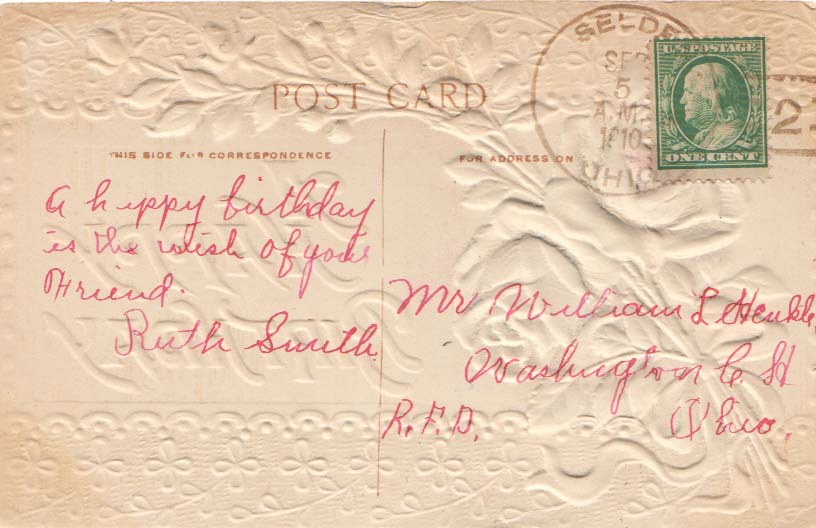 SELDE
SEP
5
A.M.
1910
OHIO
U.S. POSTAGE
ONE CENT
2
POST CARD
THIS SIDE FOR CORRESPONDENCE
FOR ADDRESS ON
A happy birthday
is the wish of your
Friend.
Ruth Smith
Mr William L Henkle
Washington C H
R.F.D. Ohio.